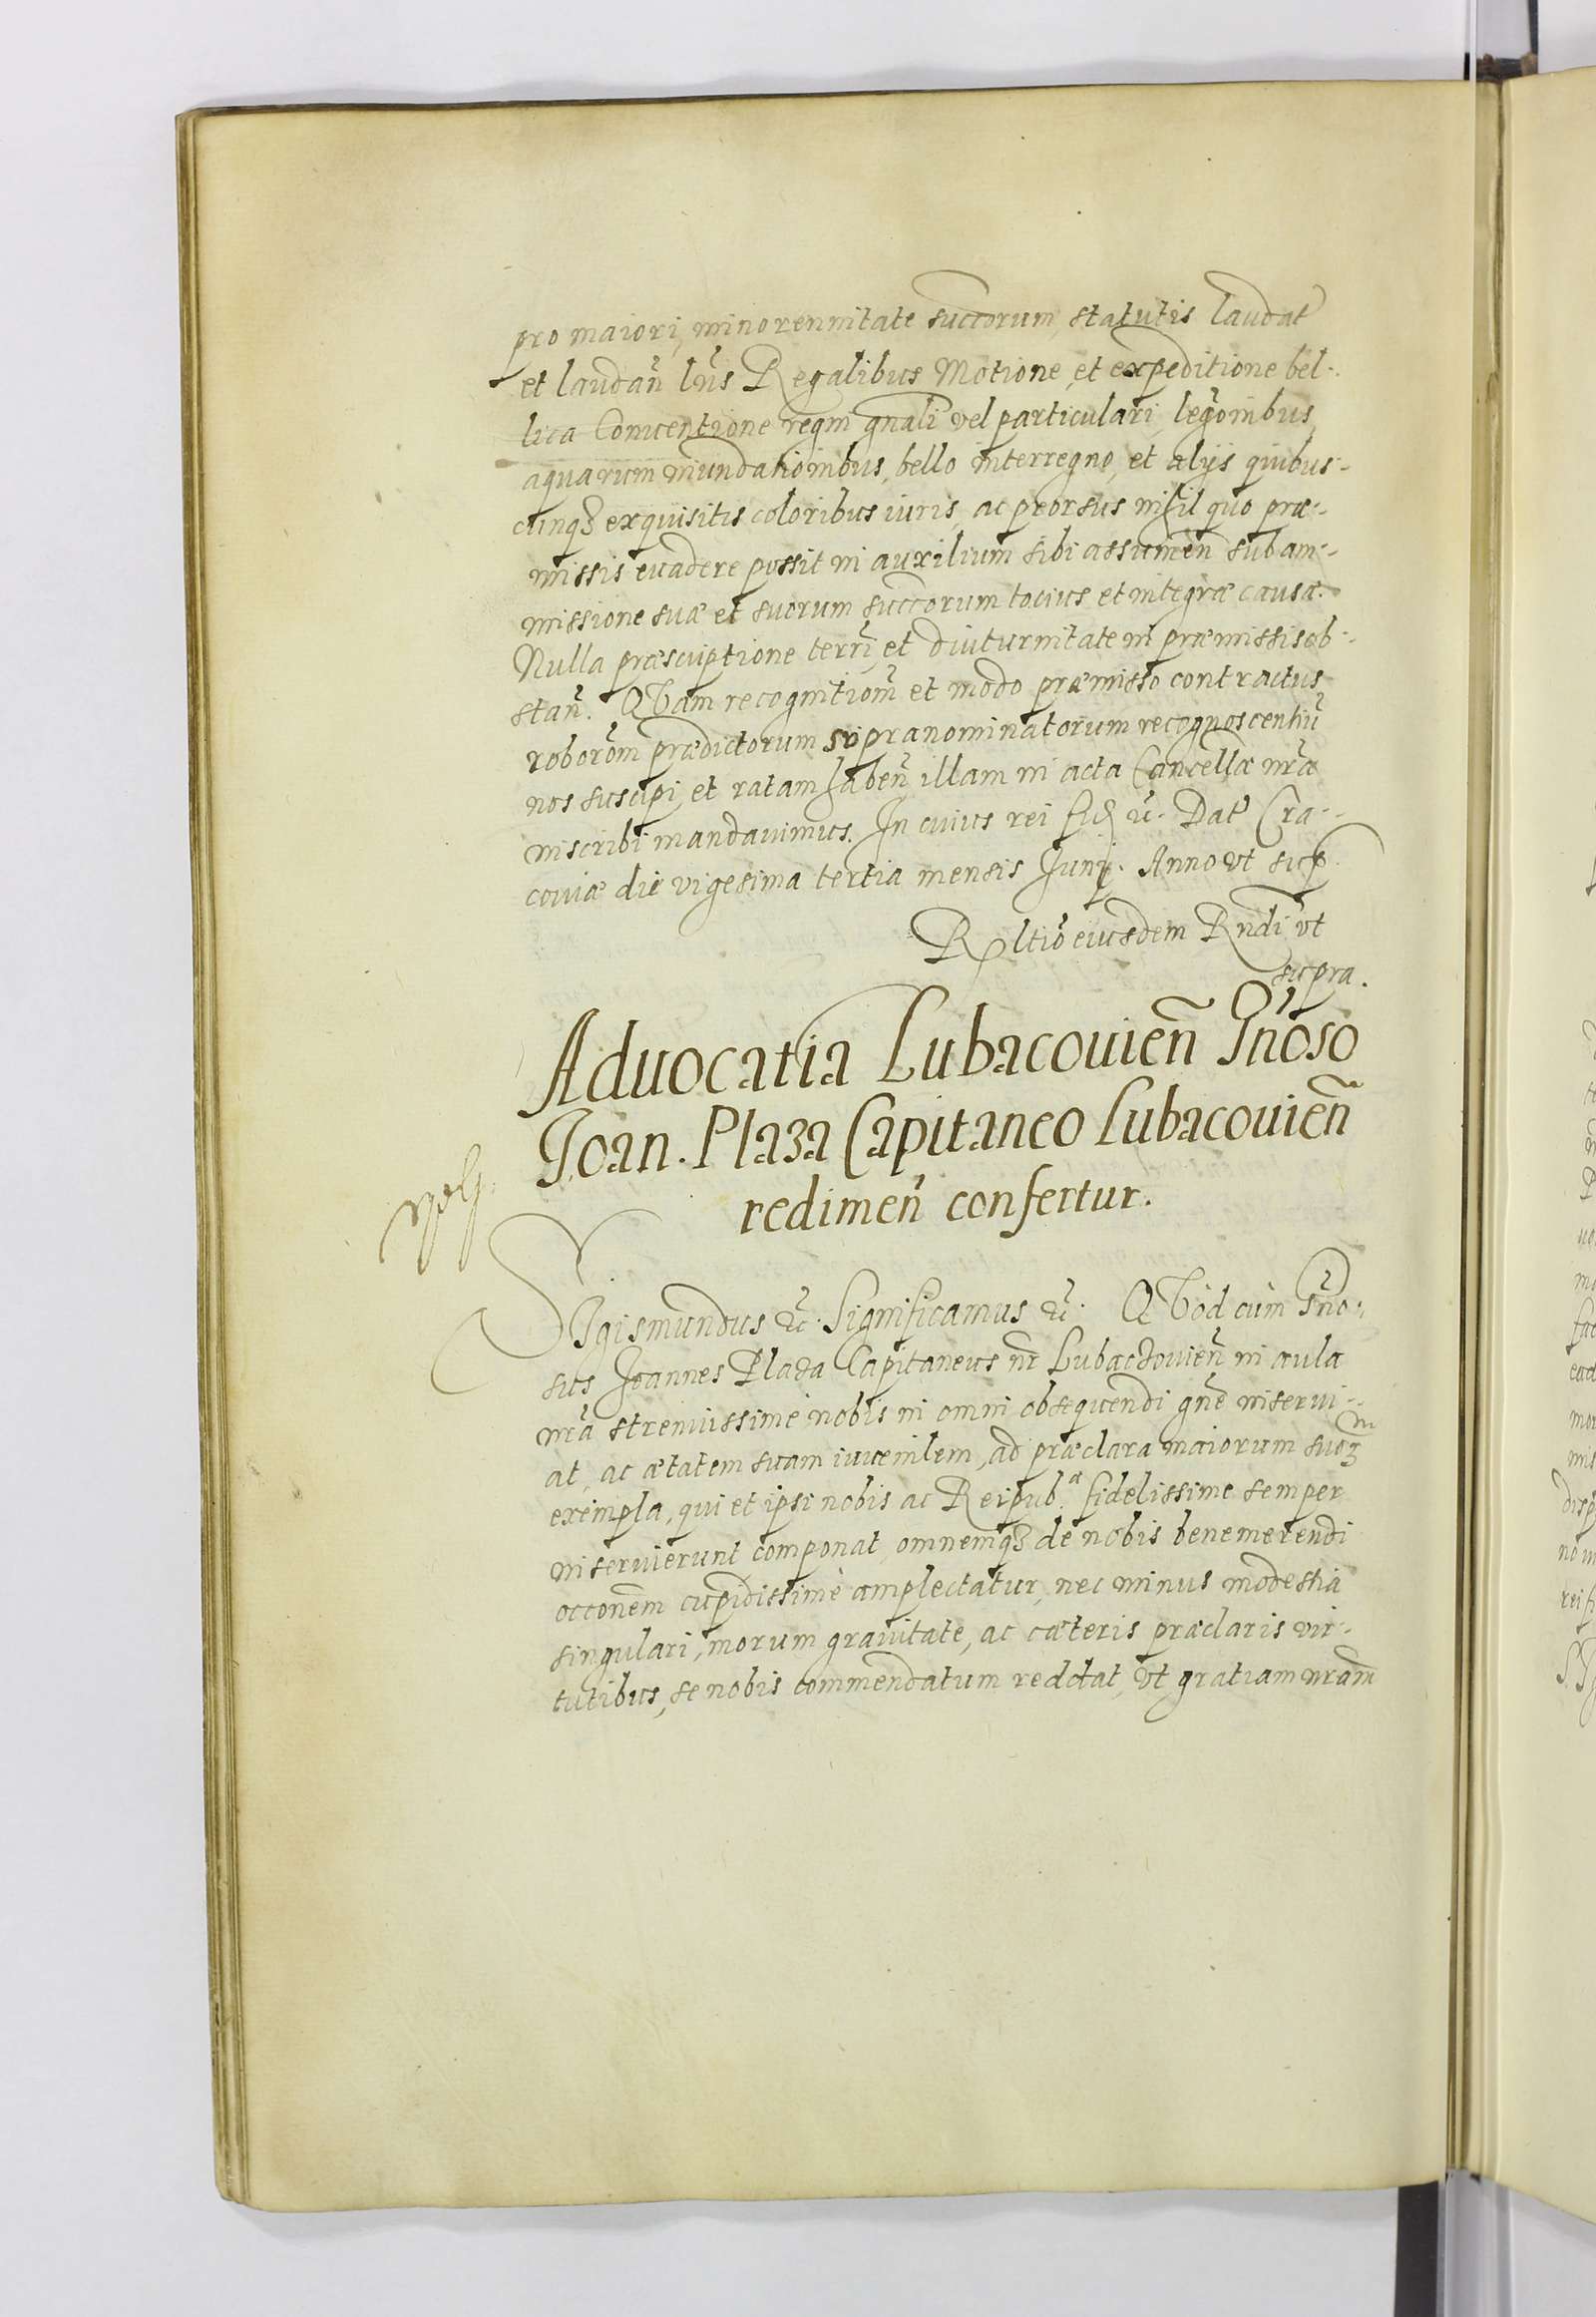 pro maiori, minorennitate succorum, statutis laudat̃
et laudañ lr̃is Regalibus Motione, et expeditione bel-
lica Conuentione regni gñali vel particulari, leg̃oinbus
aquarum inundatioĩnbus, bello interregno, et alijs quibus-
cunqꝫ exquisitis coloribus iuris, ac prorsus nihil quo præ-
missis euadere possit in auxilium sibi assumeñ sub am-
missione suæ et suorum succorum tocius et integræ causæ.
Nulla præscriptione terri, et diuturnitate in præmissis ob-
stañ. QVam recognitioñm et modo præmisso contractus
roborõm prædictorum supranominatorum recognoscentiũ
nos suscipi, et ratam habeñ illam in acta Cancellæ nr̃æ
inscribi mandauimus. In cuius rei fid̃ &c. Dat̃ Cra-
couiæ die vigesima tertia mensis Junij. Anno vt sup.
Rltiõ eiusdem Rndi vt
supra.
Aduocatia Lubacouieñ Gñoso
Joan. Plaza Capitaneo Lubacouieñ
redimeñ confertur.
SIgismundus &c. Significamus &c. QVod cum Gño-
sus Joannes Plaza Capitaneus nr̃ Lubaczouieñ in aula
nr̃a strenuissime nobis in omni obsequendi gñe inserui-
at, ac ætatem suam iuuenilem, ad præclara maiorum suoꝝ
exempla, qui et ipsi nobis ac Reipub. fidelissime semper
inseruierunt componat, omnemqꝫ de nobis benemerendi
occonem cupidissimè amplectatur, nec minus modestia
singulari, morum grauitate, ac cæteris præclaris vir-
tutibus, se nobis commendatum reddat, vt gratiam nr̃am